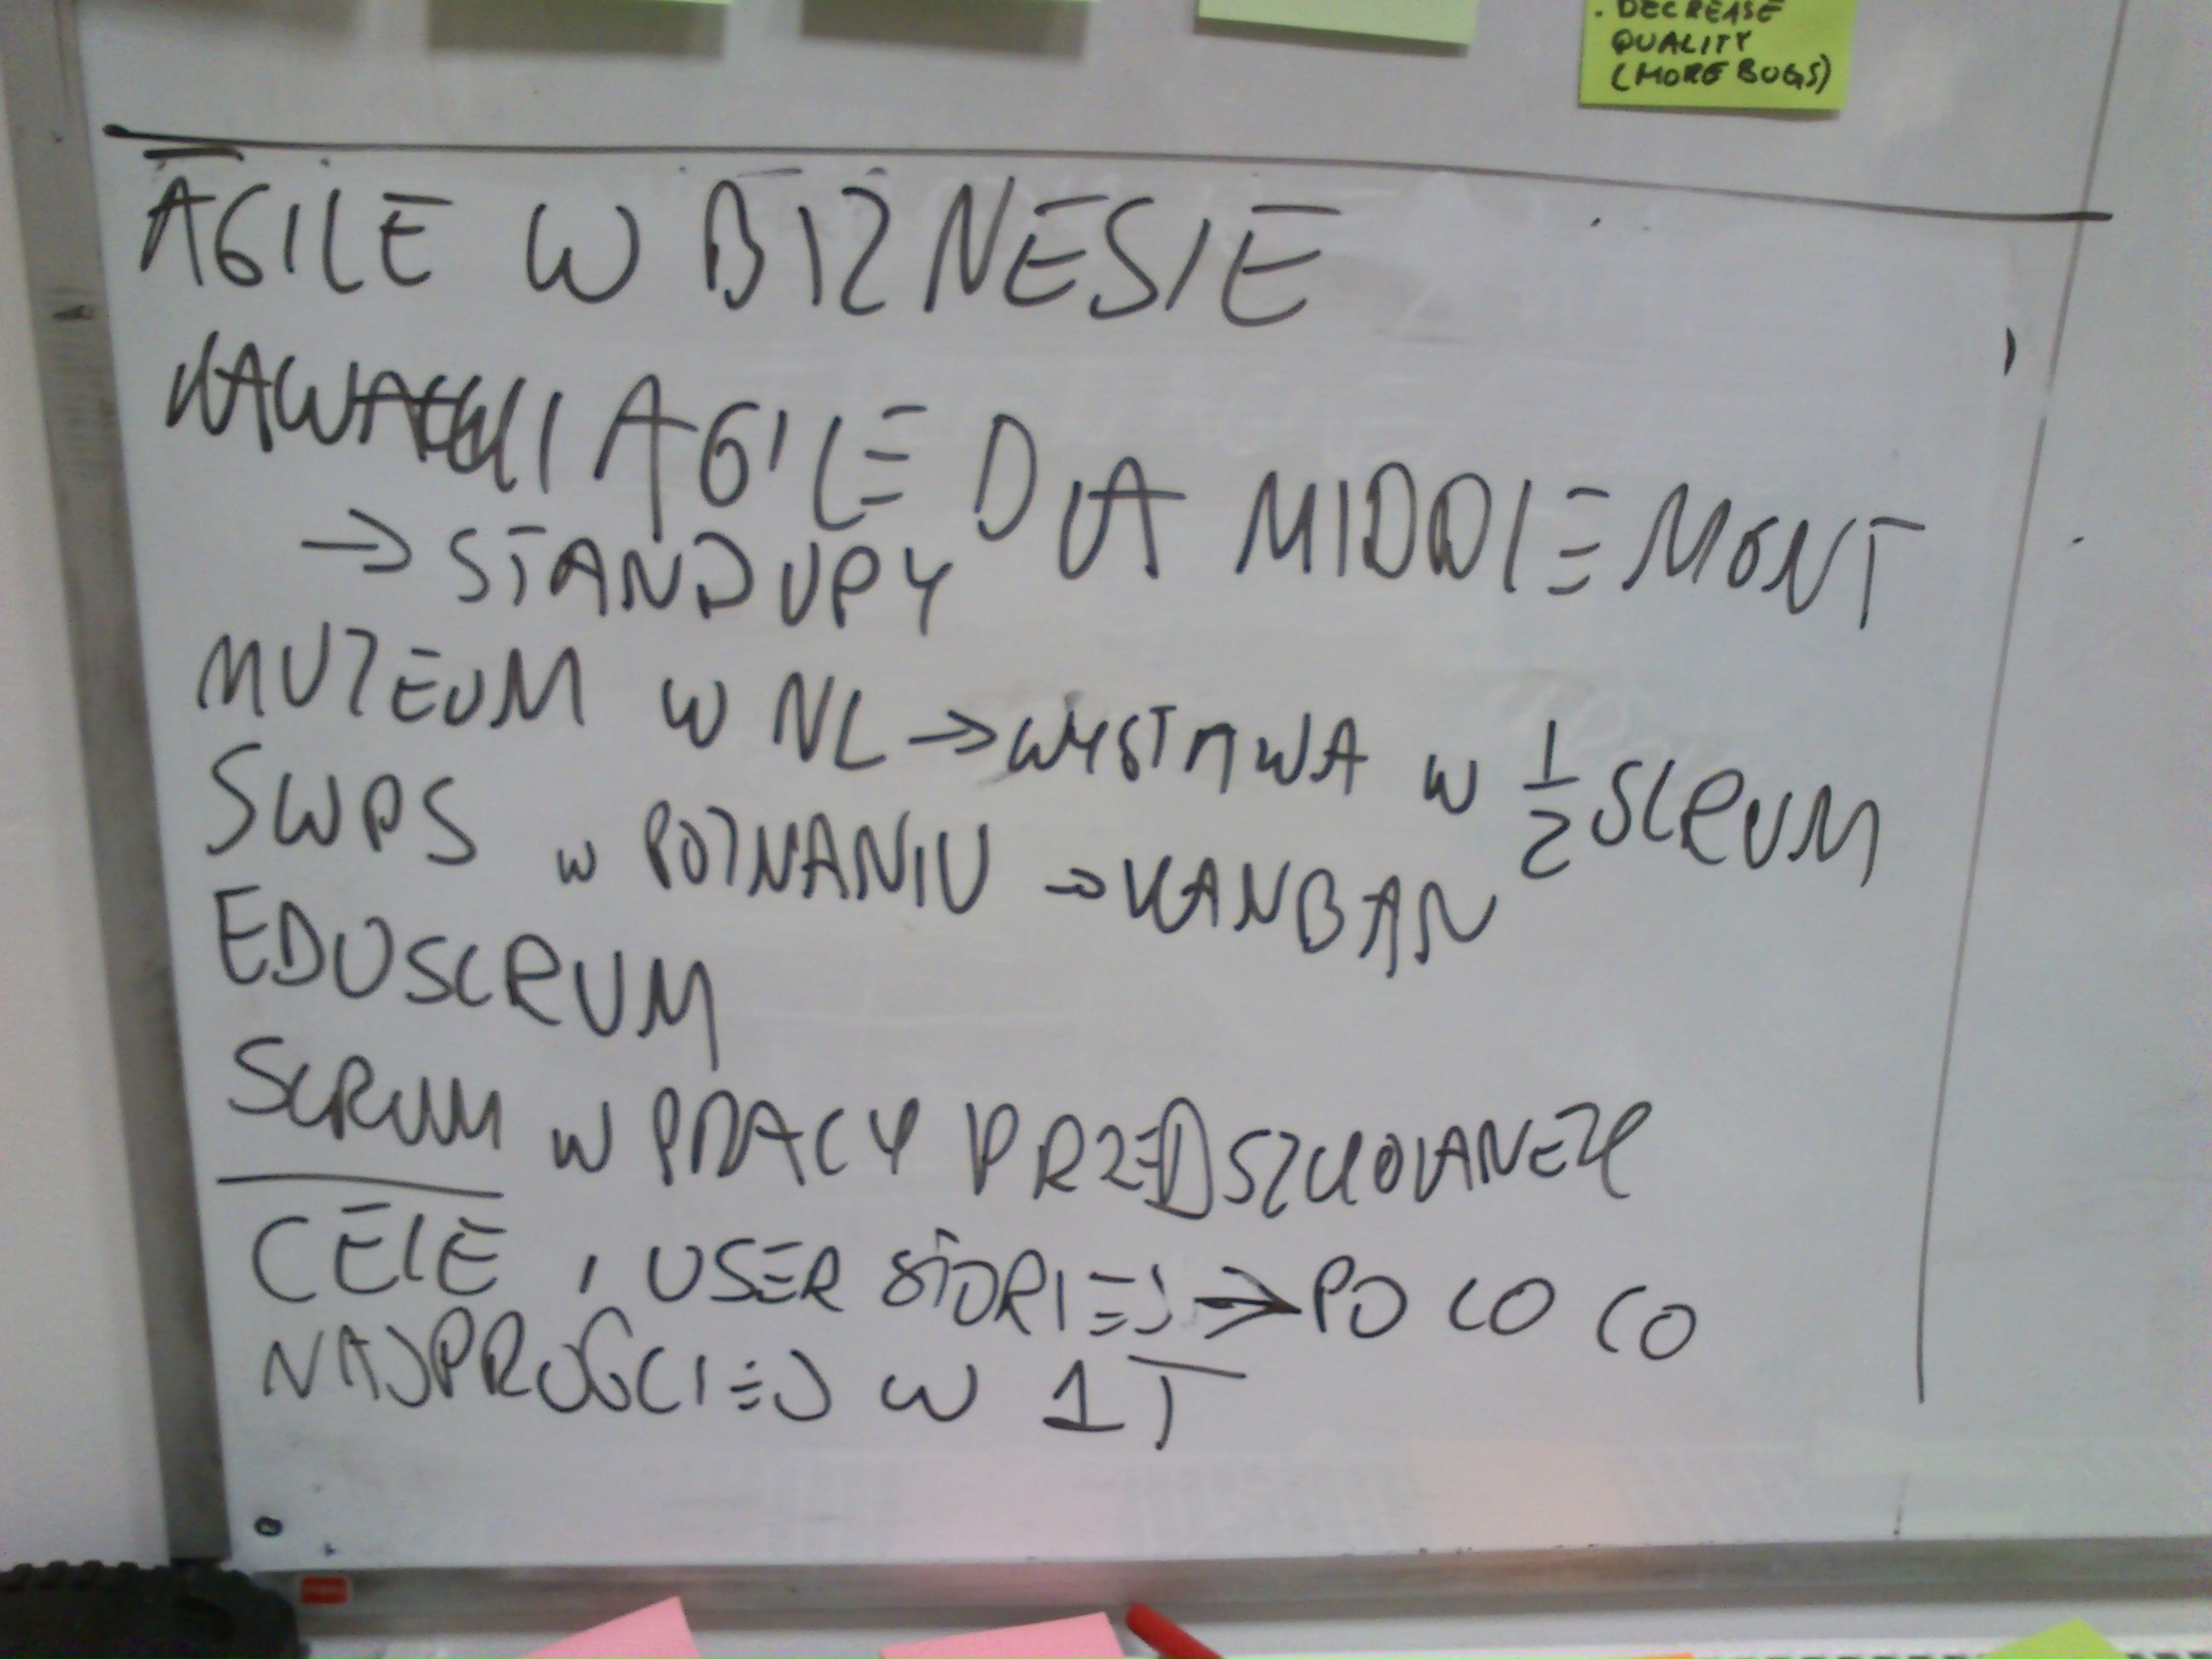 . DECREASE
QUALITY
(MORE BUGS)
AGILE W BIZNESIE
KAWAŁKI AGILE DLA MIDDLE MGNT
→ STANDUPY
MUZEUM W NL → WYSTAWA W 1/2 SCRUM
SWPS W POZNANIU → KANBAN
EDUSCRUM
SCRUM W PRACY PRZEDSZKOLANEK
CELE, USER STORIES → PO CO CO
NAJPROŚCIEJ W IT